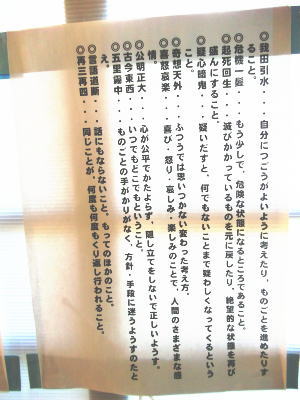 ◎我田引水・・・自分につごうがよいように考えたり、ものごとを進めたりす
ること。
◎危機一髪・・・もう少しで、危険な状態になるところであること。
◎起死回生・・・滅びかかっているものを元に戻したり、絶望的な状態を再び
盛んにすること。
◎疑心暗鬼・・・疑いだすと、何でもないことまで疑わしくなってくるという
こと。
◎奇想天外・・・ふつうでは思いつかない変わった考え方。
◎喜怒哀楽・・・喜び・怒り・哀しみ・楽しみのことで、人間のさまざまな感
情。
◎公明正大・・・心が公平でかたよらず、隠し立てをしないで正しいようす。
◎古今東西・・・いつでもどこでもということ。
◎五里霧中・・・ものごとの手がかりがなく、方針・手段に迷うようすのたと
え。
◎言語道断・・・話にもならないこと。もってのほかのこと。
◎再三再四・・・同じことが、何度も何度もくり返し行われること。